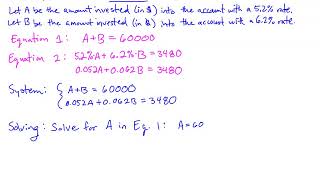 Let A be the amount invested (in $) into the account with a 5.2% rate.
Let B be the amount invested (in $) into the account with a 6.2% rate.
Equation 1: A+B = 60000
Equation 2: 5.2%·A + 6.2%·B = 3480
0.052A+0.062B = 3480
System: { A+B = 60000
0.052A+0.062B = 3480
Solving: Solve for A in Eq. 1: A=60